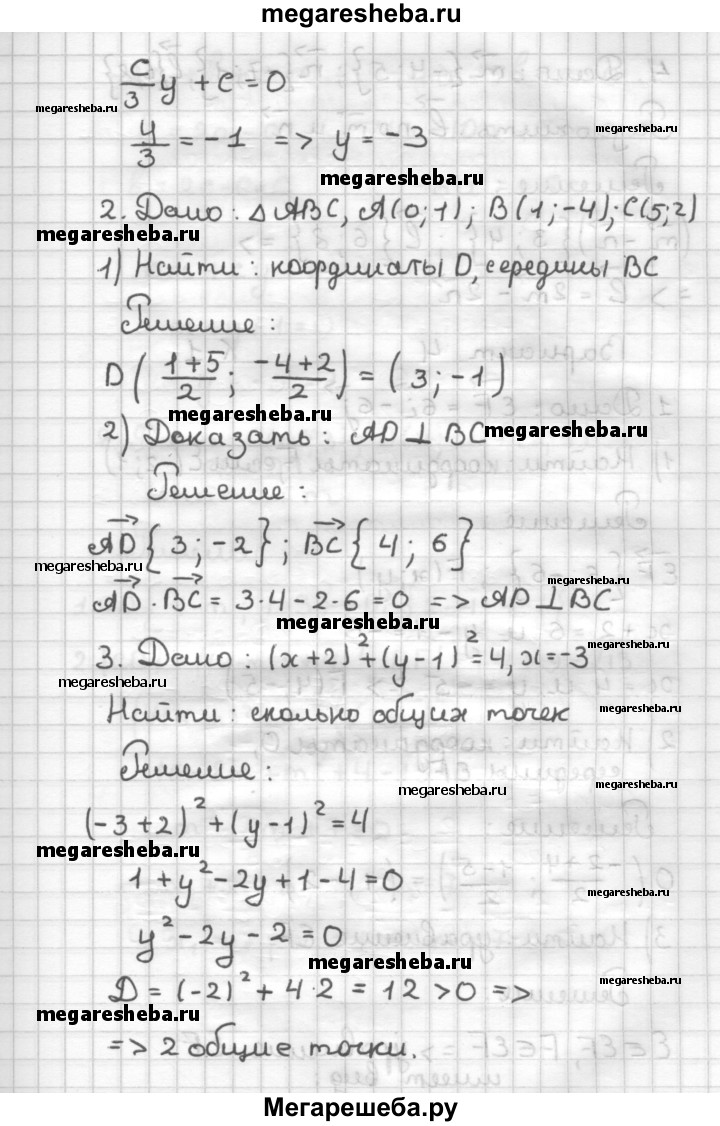 megaresheba.ru
c/3 y + c = 0
megaresheba.ru
y/3 = -1 => y = -3
megaresheba.ru
megaresheba.ru
2. Дано: △ABC, A(0; 1); B(1; -4); C(5; 2)
megaresheba.ru
1) Найти: координаты D, середины BC
Решение:
D( (1+5)/2 ; (-4+2)/2 ) = (3; -1)
megaresheba.ru
2) Доказать: AD ⊥ BC
megaresheba.ru
Решение:
AD→{3; -2}; BC→{4; 6}
megaresheba.ru
megaresheba.ru
AD→ · BC→ = 3·4 - 2·6 = 0 => AD ⊥ BC
megaresheba.ru
3. Дано: (x+2)² + (y-1)² = 4, x = -3
megaresheba.ru
megaresheba.ru
Найти: сколько общих точек
megaresheba.ru
Решение:
megaresheba.ru
megaresheba.ru
(-3+2)² + (y-1)² = 4
megaresheba.ru
1 + y² - 2y + 1 - 4 = 0
megaresheba.ru
y² - 2y - 2 = 0
megaresheba.ru
D = (-2)² + 4·2 = 12 > 0 =>
megaresheba.ru
megaresheba.ru
=> 2 общие точки.
Мегарешеба.ру